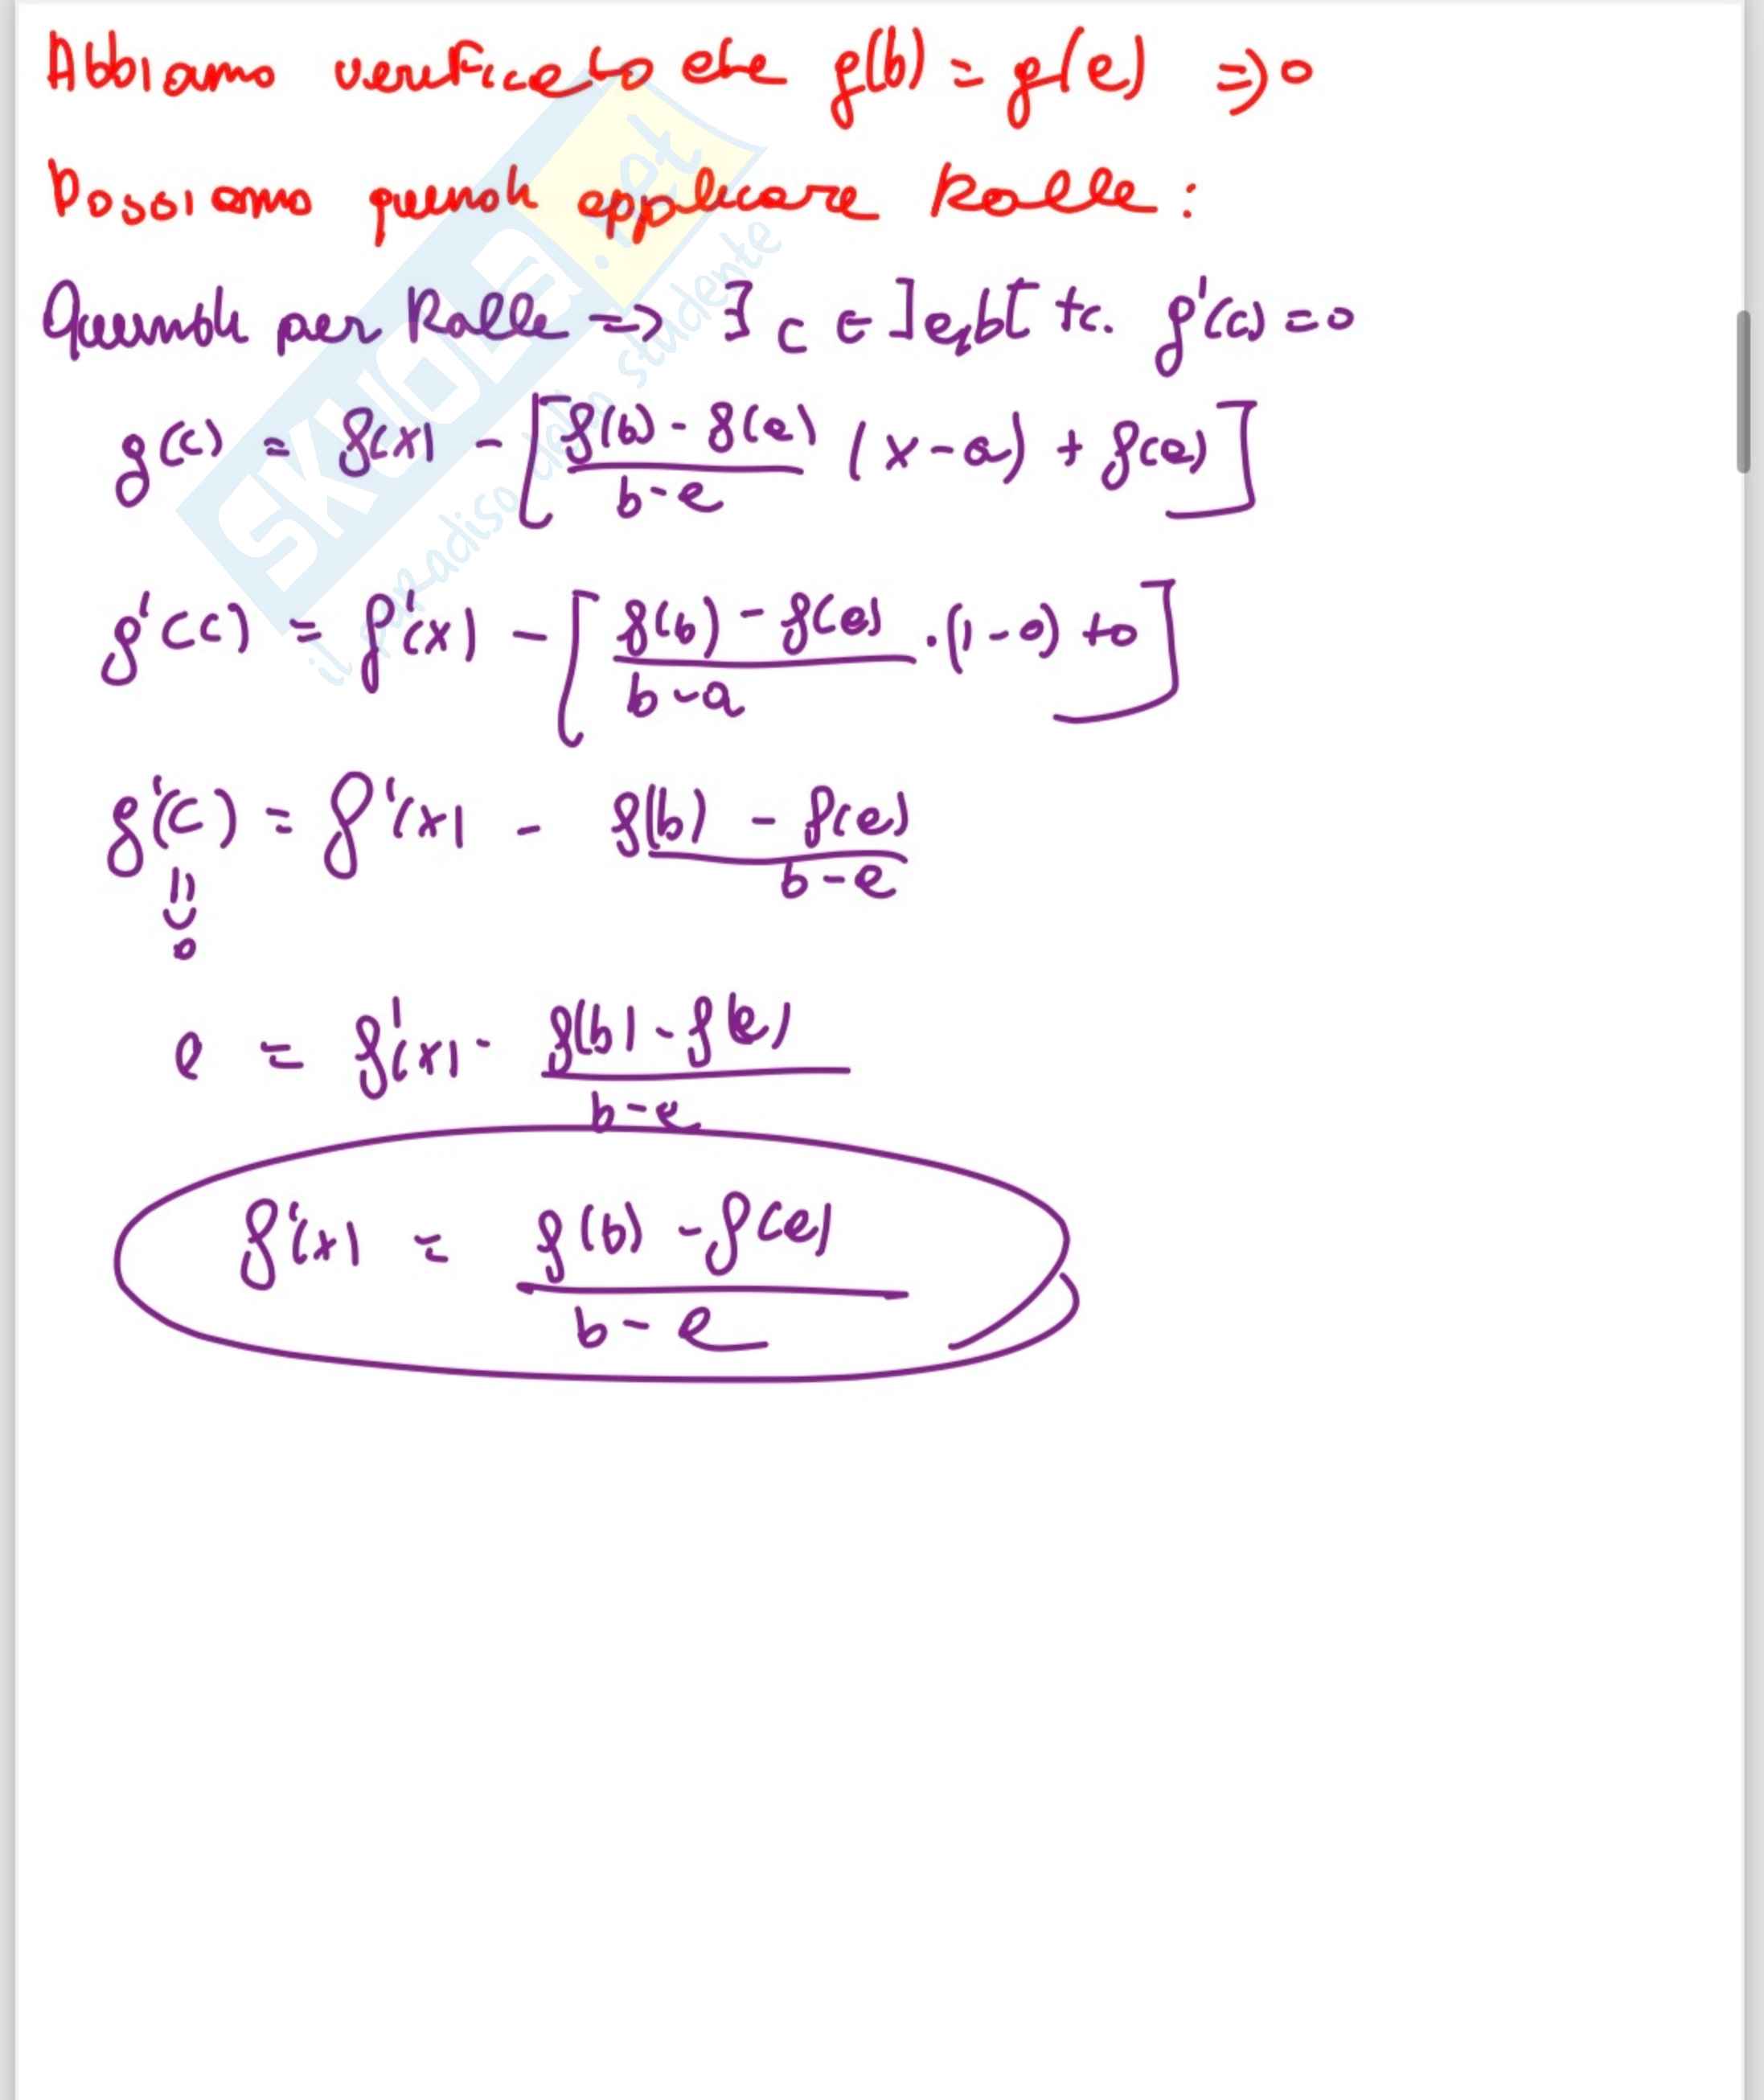 Abbiamo verificato che g(b) = g(a) => 0
Possiamo quindi applicare Rolle :
Quindi per Rolle => ∃ c ∈ ]a,b[ tc. g'(c) = 0
g(c) = f(x) - [ f(b) - f(a) / b-a (x-a) + f(a) ]
g'(c) = f'(x) - [ f(b) - f(a) / b-a . (1-0) +0 ]
g'(c) = f'(x) - f(b) - f(a) / b-a
=
0
0 = f'(x) - f(b) - f(a) / b-a
f'(x) = f(b) - f(a) / b-a
SKUOLA.net
il paradiso dello studente